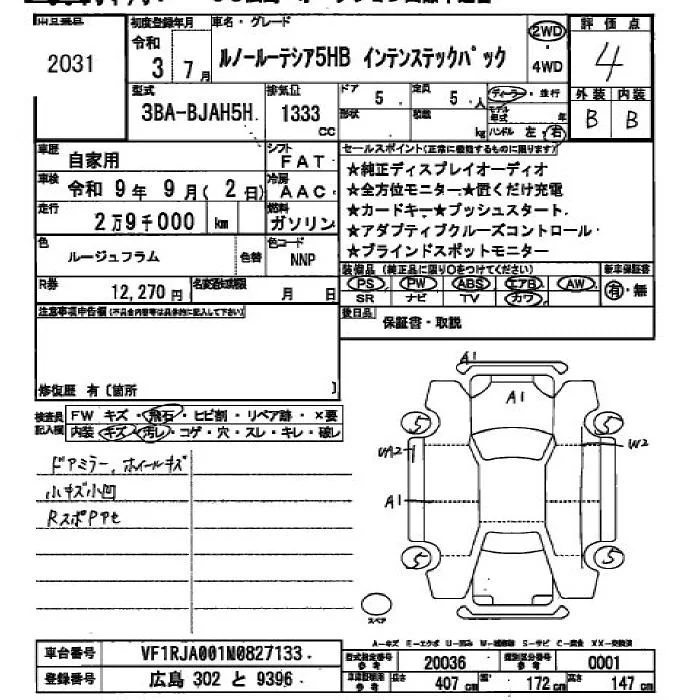 2031
初度登録年月 令和 3 7月
車名・グレード
ルノールーテシア5HB インテンステックパック
2WD ・ 4WD
評価点 4
型式 3BA-BJAH5H
排気量 1333 CC
ドア 5
定員 5人
形状
積載 kg
ディーラー・並行
モデル年式 年
ハンドル 左・右
外装 内装
B B
車歴 自家用
シフト FAT
車検 令和 9年 9月(2日)
冷房 AAC
走行 2万9千000 km
燃料 ガソリン
色 ルージュフラム
色替
色コード NNP
R券 12,270円
名変期限 月 日
セールスポイント(正常に機能するものに限ります)
★純正ディスプレイオーディオ
★全方位モニター★置くだけ充電
★カードキー★プッシュスタート
★アダプティブクルーズコントロール
★ブラインドスポットモニター
装備品(純正品に限り○をつけてください)
PS・PW・ABS・エアB・AW
SR ナビ TV カワ
新車保証書
有・無
後日品 保証書・取説
注意事項申告欄(不具合内容等は具体的に記入して下さい)
修復歴 有〔箇所 〕
検査員記入欄
FW キズ・飛石・ヒビ割・リペア跡・×要
内装 キズ・汚レ・コゲ・穴・スレ・キレ・破レ
ドアミラー、ホイールキズ
小キズ小凹
A1
A1
5
5
W2
A1
5
5
スペア
A-キズ E-エクボ U-凹み W-補修跡 S-サビ C-腐食 XX-交換済
車台番号 VF1RJA001M0827133
登録番号 広島 302 と 9396
型式指定番号 参考 20036
類別区分番号 参考 0001
車検証記載 参考 長さ 407cm 幅 172cm 高さ 147cm